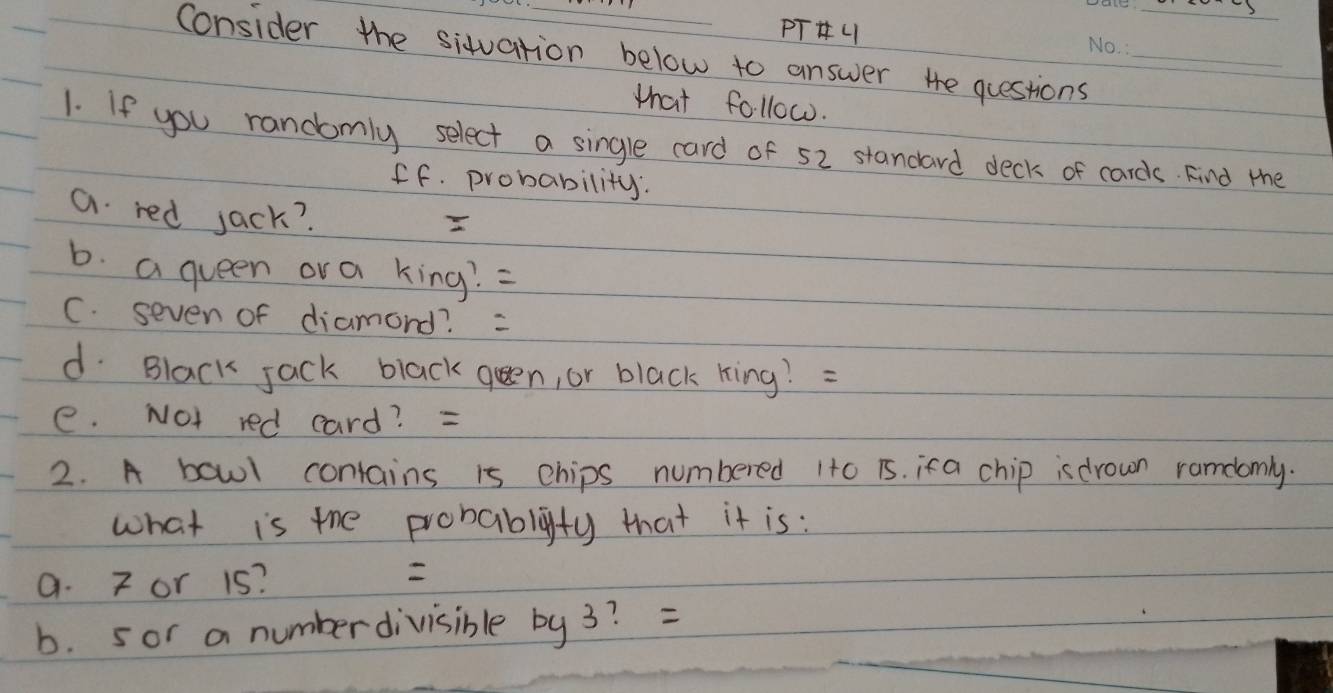 PT #4
No.:
Consider the situation below to answer the questions
that follow.
1. If you randomly select a single card of 52 standard deck of cards. Find the
ff. probability:
a. red jack? =
b. a queen or a king? =
c. seven of diamond? =
d. Black jack black queen, or black king? =
e. Not red card? =
2. A bowl contains 15 chips numbered 1 to 15. if a chip is drown ramdomly.
what is the probablity that it is:
a. 7 or 15? =
b. 5 or a number divisible by 3? =